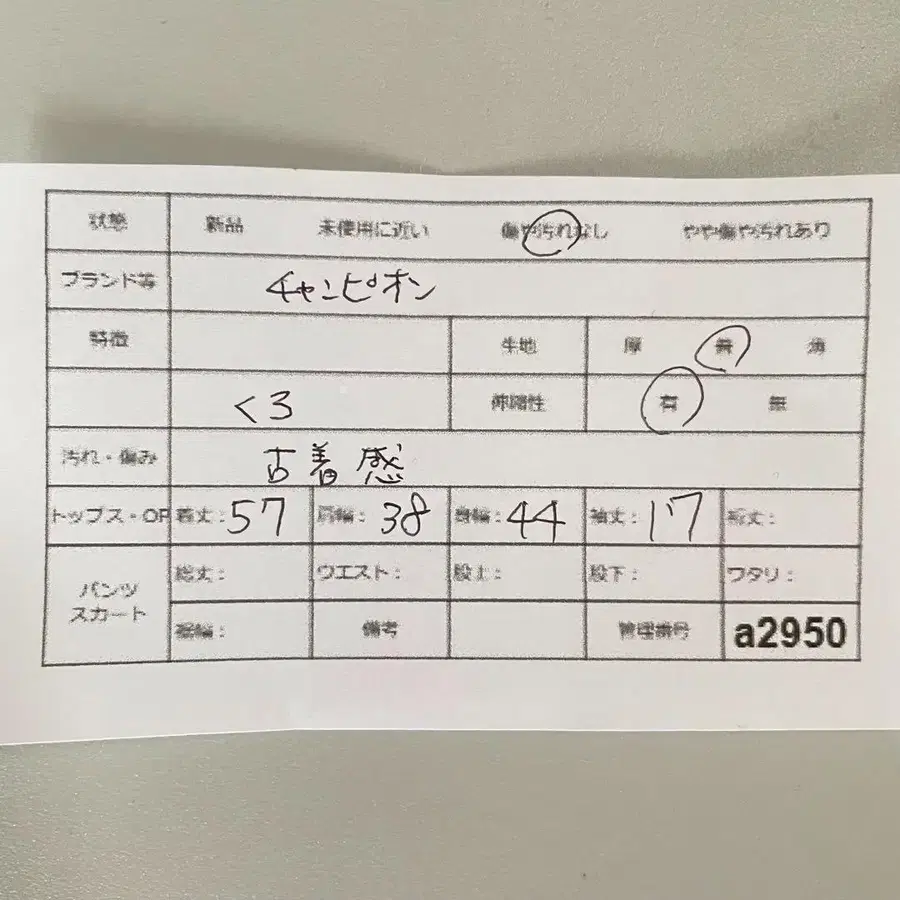 状態 新品 未使用に近い 傷や汚れなし やや傷や汚れあり
ブランド等 チャンピオン
特徴 生地 厚 普 薄
くろ 伸縮性 有 無
汚れ・傷み 古着感
トップス・OP 着丈：57 肩幅：38 身幅：44 袖丈：17 裄丈：
パンツ スカート 総丈： ウエスト： 股上： 股下： ワタリ：
裾幅： 備考 管理番号 a2950